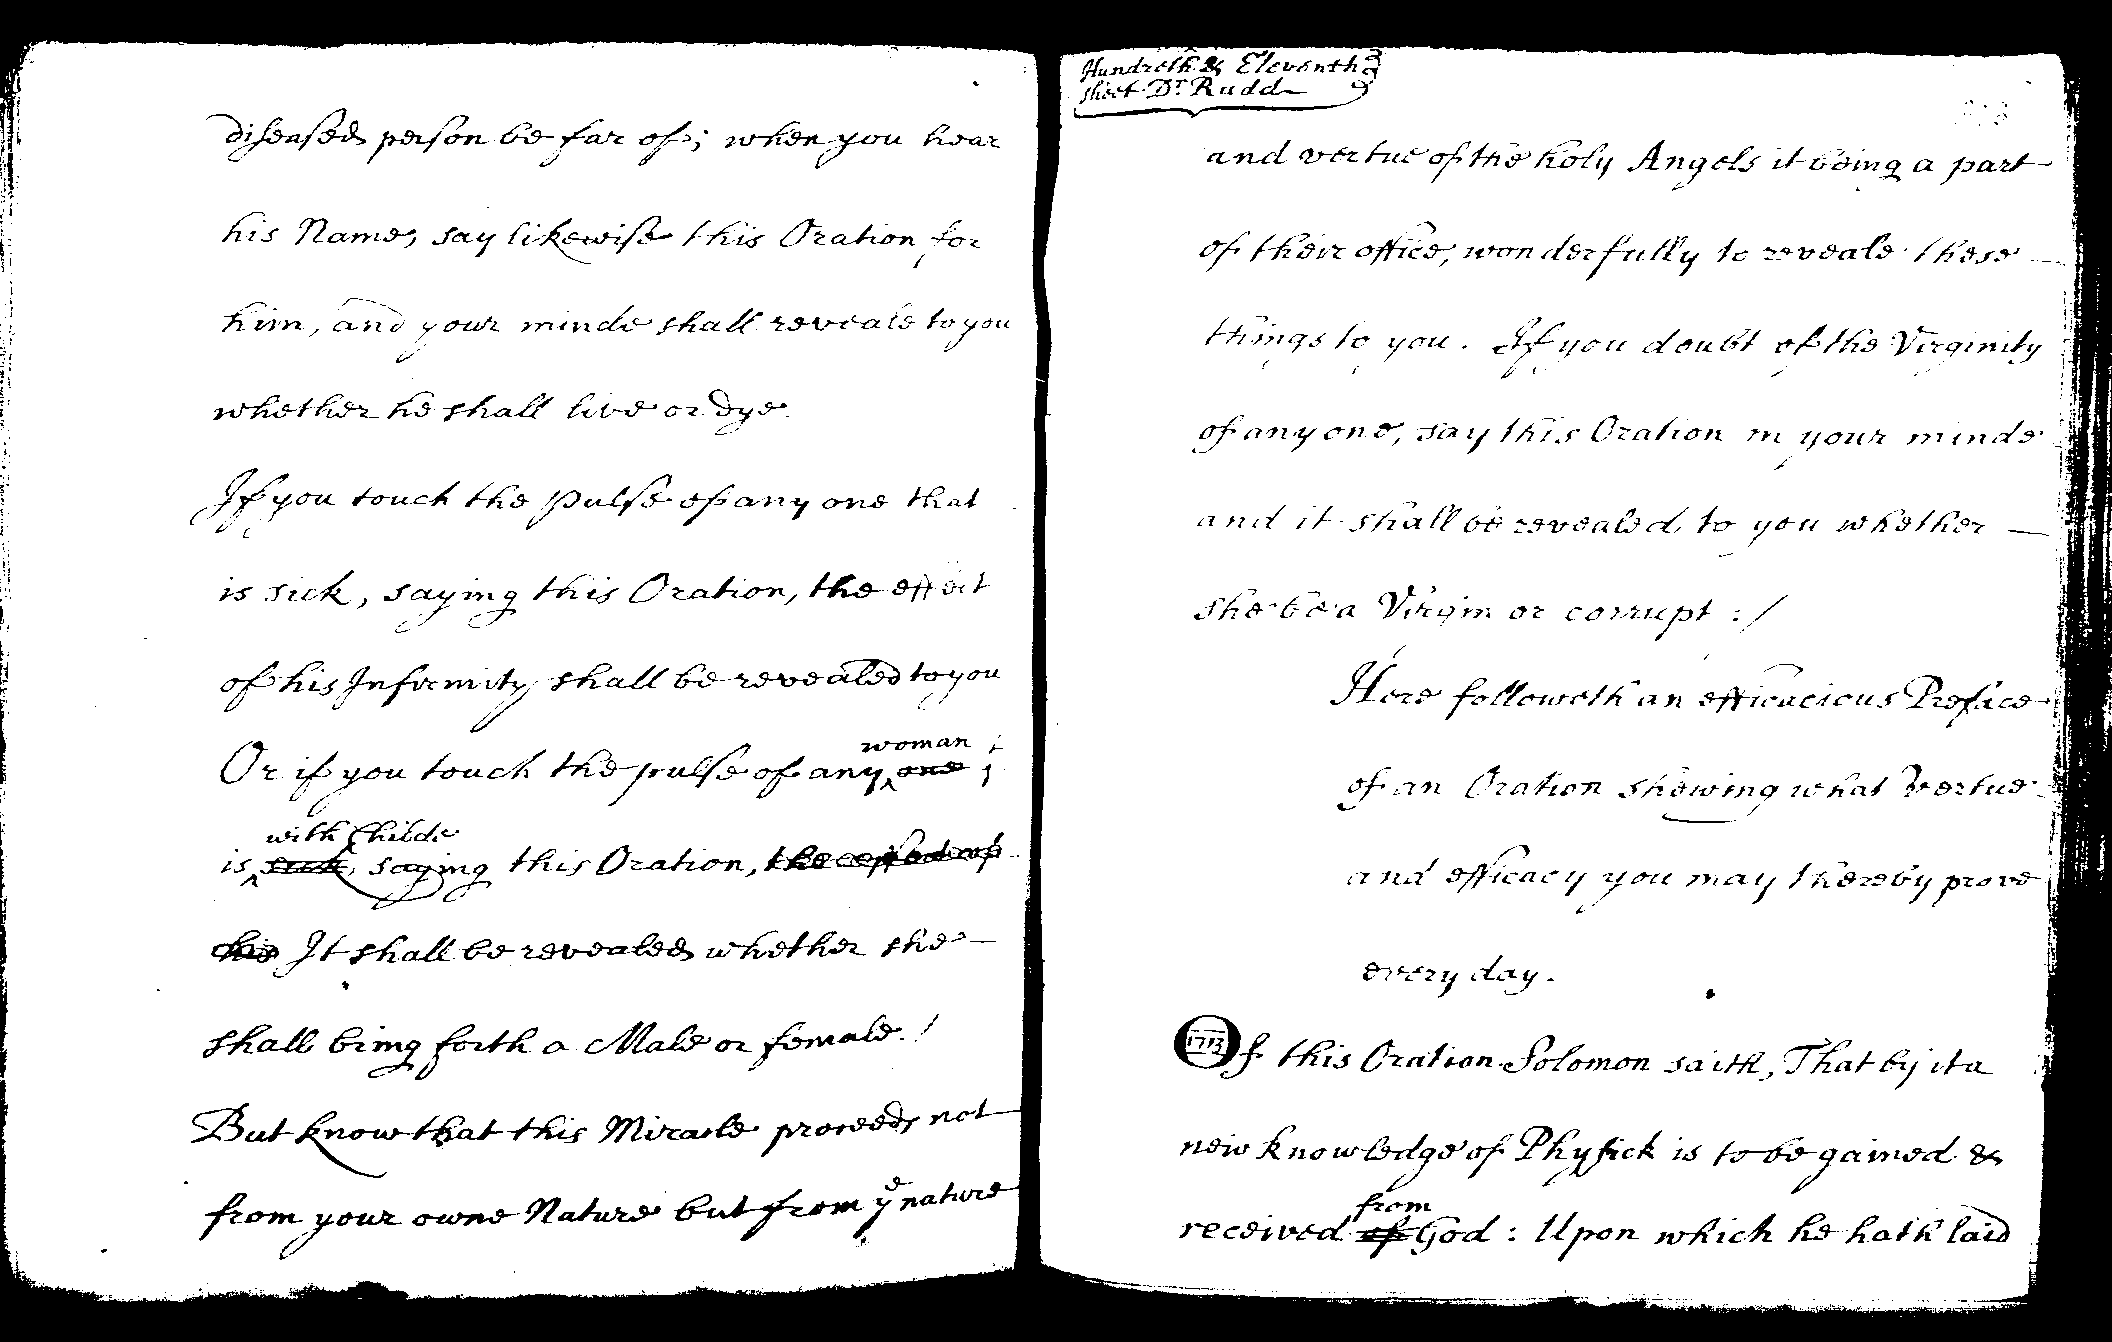 diseased person be far of; when you hear
his Name, say likewise this Oration for
him, and your minde shall reveale to you
whether he shall live or dye.
If you touch the Pulse of any one that
is sick, saying this Oration, the effect
of his Infirmity shall be revealed to you
Or if you touch the pulse of any woman one ;
is with Childe sick, saying this Oration, the effect of
his It shall be revealed whether she —
shall bring forth a Male or female. /
But know that this Miracle proceeds not
from your owne Nature but from yᵉ nature
Hundreth & Eleventh
sheet Dʳ Rudd
and vertue of the holy Angels it being a part
of their office, wonderfully to reveale these —
things to you. If you doubt of the Virginity
of any one, say this Oration in your minde
and it shall be revealed to you whether —
she be a Virgin or corrupt :/
Here followeth an efficacious Preface
of an Oration shewing what vertue
and efficacy you may thereby prove
every day.
Of this Oration Solomon saith, That by it a
new knowledge of Physick is to be gained &
received from of God : Upon which he hath laid